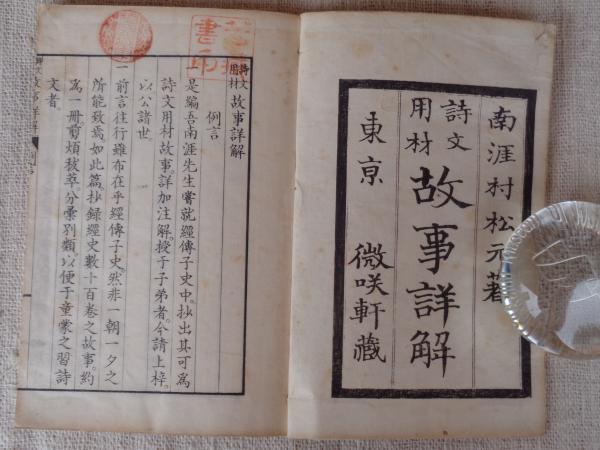 南涯村松元著
詩文
用材
故事詳解
東亰 微咲軒藏
詩文
用材
故事詳解
例言
是編吾南涯先生嘗就經傳子史中。抄出其可爲
詩文用材故事。詳加注解。授于子弟者。今請上梓。
以公諸世。
一前言往行雖布在乎經傳子史。然非一朝一夕之
所能致焉。如此篇。抄錄經史數十百卷之故事。約
爲一册。剪煩拔萃。分彙別類。以便于童蒙之習詩
文者。
書印